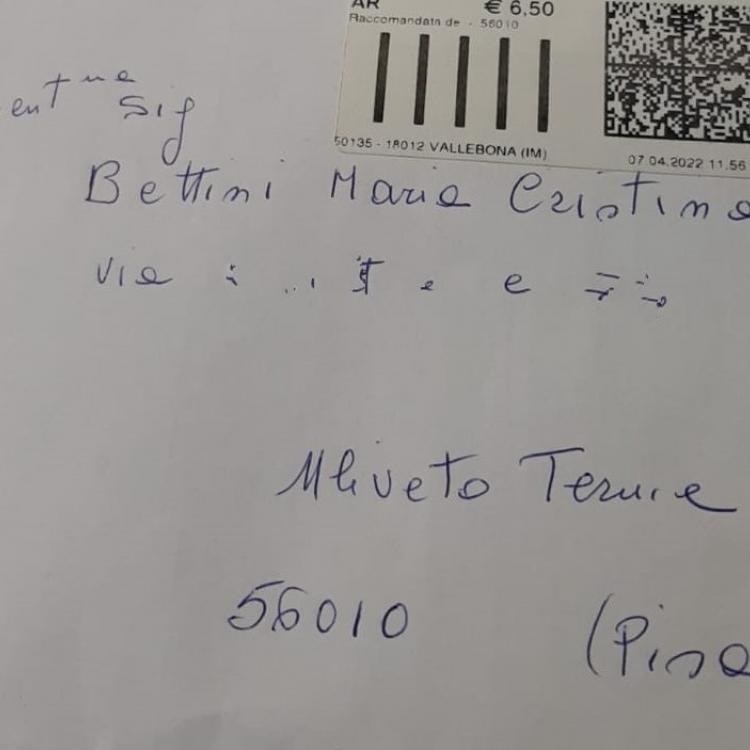 AR € 6,50
Raccomandata de - 56010
50135 - 18012 VALLEBONA (IM)
07.04.2022 11.56
ent ma
Sig
Bettini Maria Cristina
via
Uliveto Terme
56010 (Pisa